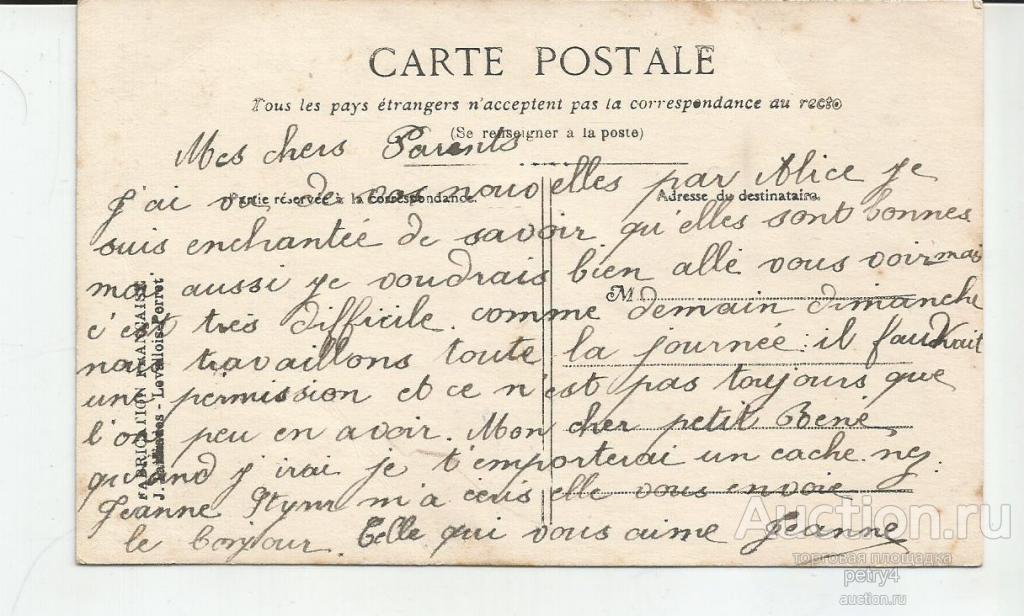 CARTE POSTALE
Tous les pays étrangers n'acceptent pas la correspondance au recto
(Se renseigner à la poste)
Mes chers Parents
Partie réservée à la correspondance.
Adresse du destinataire.
J'ai vu de vos nouvelles par Alice je
suis enchantée de savoir qu'elles sont bonnes
moi aussi je voudrais bien allé vous voir mais
M
c'est très difficile. comme demain dimanche
nous travaillons toute la journée il faudrait
une permission et ce n'est pas toujours que
l'on peu en avoir. Mon cher petit René
quand j'irai je t'emporterai un cache nez.
Jeanne m'a écris elle vous envoie
le bonjour. Celle qui vous aime Jeanne
FABRICATION FRANÇAISE
J. - Levallois-Perret
Auction.ru
торговая площадка
petry4
auction.ru